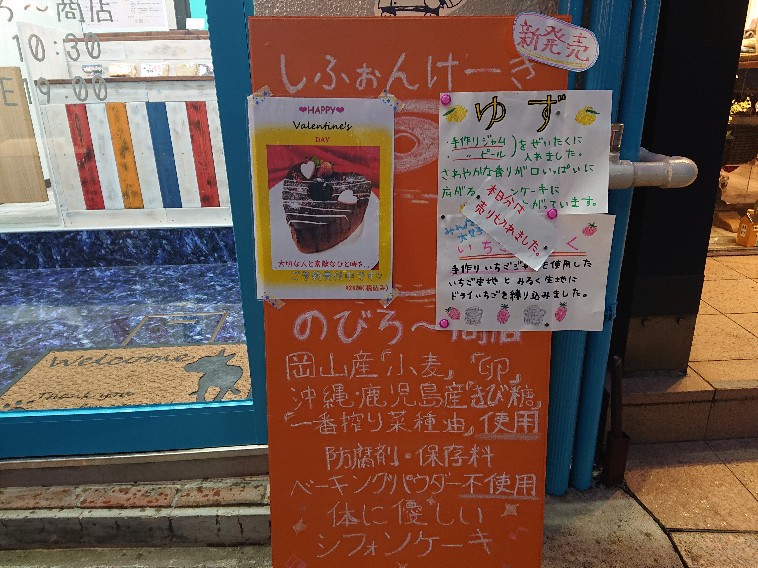 ろ〜商店
10:30
9:00
新発売
しふぉんけーき
HAPPY
Valentine's
DAY
大切な人と素敵なひと時を..
ゆず
・手作りジャム
〃 ピール
をぜいたくに
入れました。
さわやかな香りが口いっぱいに
広がる
ンケーキに
がっています。
本日分は
売り切れました。
みん
いち
く
手作りいちごジャムを使用した
いちご生地とみるく生地に
ドライいちごを練り込みました。
のびろ〜商店
岡山産「小麦」「卵」
沖縄・鹿児島産「きび糖」
「一番搾り菜種油」使用
防腐剤・保存料
ベーキングパウダー不使用
体に優しい
シフォンケーキ
Welcome
Thank you